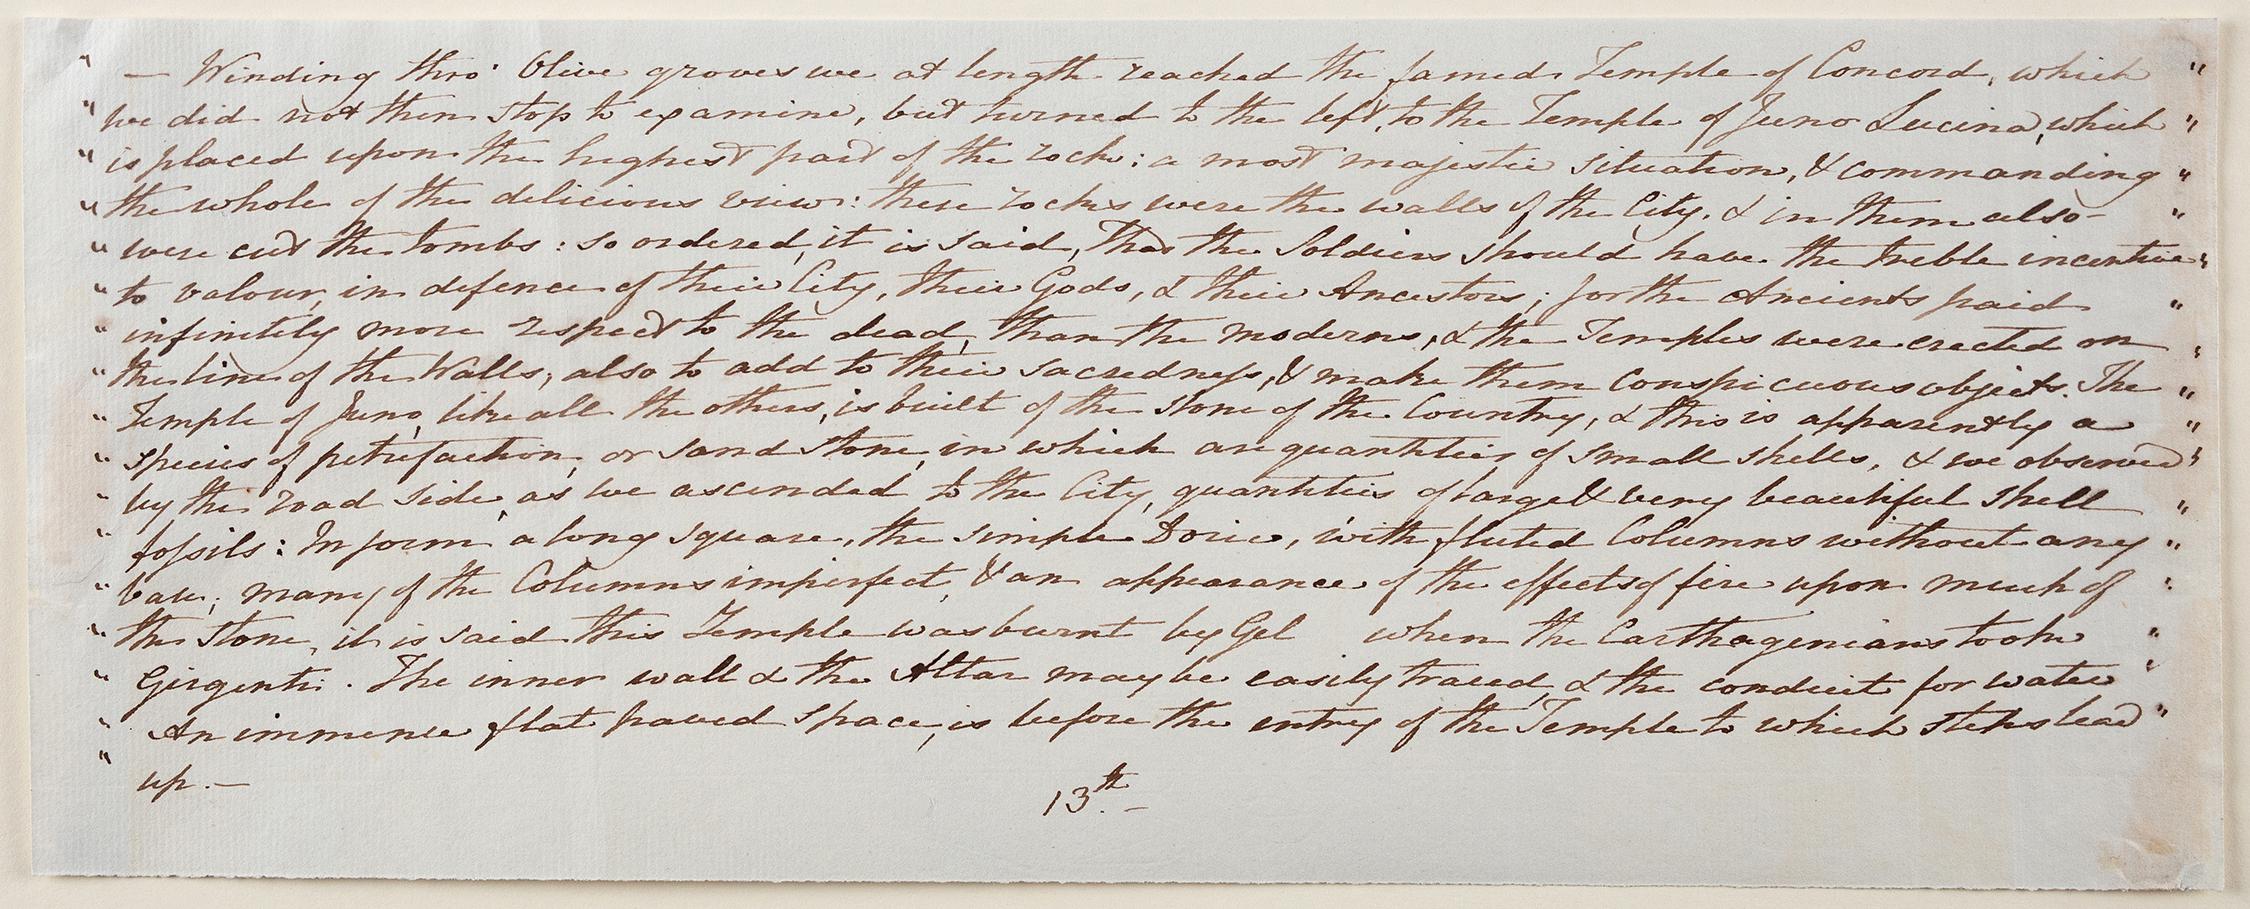 " — Winding thro' Olive groves we at length reached the famed Temple of Concord, which "
" we did not then stop to examine, but turned to the left, to the Temple of Juno Lucina, which "
" is placed upon the highest part of the rock: a most majestic situation, & commanding "
" the whole of the delicious view: these rocks were the walls of the City, & in them also - "
" were cut the tombs: so ordered, it is said, that the Soldiers should have the treble incentive "
" to valour, in defence of their City, their Gods, & their Ancestors; for the Ancients paid "
" infinitely more respect to the dead, than the moderns, & the Temples were erected on "
" the line of the Walls, also to add to their sacredness, & make them conspicuous objects. The "
" Temple of Juno, like all the others, is built of the stone of the Country, & this is apparently a "
" species of petrifaction, or sand stone, in which are quantities of small shells, & we observed "
" by the road side, as we ascended to the City, quantities of large & very beautiful shell "
" fossils: In form a long square, the simple Doric, with fluted Columns without any "
" base; many of the Columns imperfect, & an appearance of the effects of fire upon much of "
" the stone, it is said this Temple was burnt by Gel when the Carthagenians took "
" Girgenti. The inner wall & the Altar may be easily traced, & the conduit for water "
" An immense flat paved space, is before the entry of the Temple to which steps lead "
" up. —
13th. —